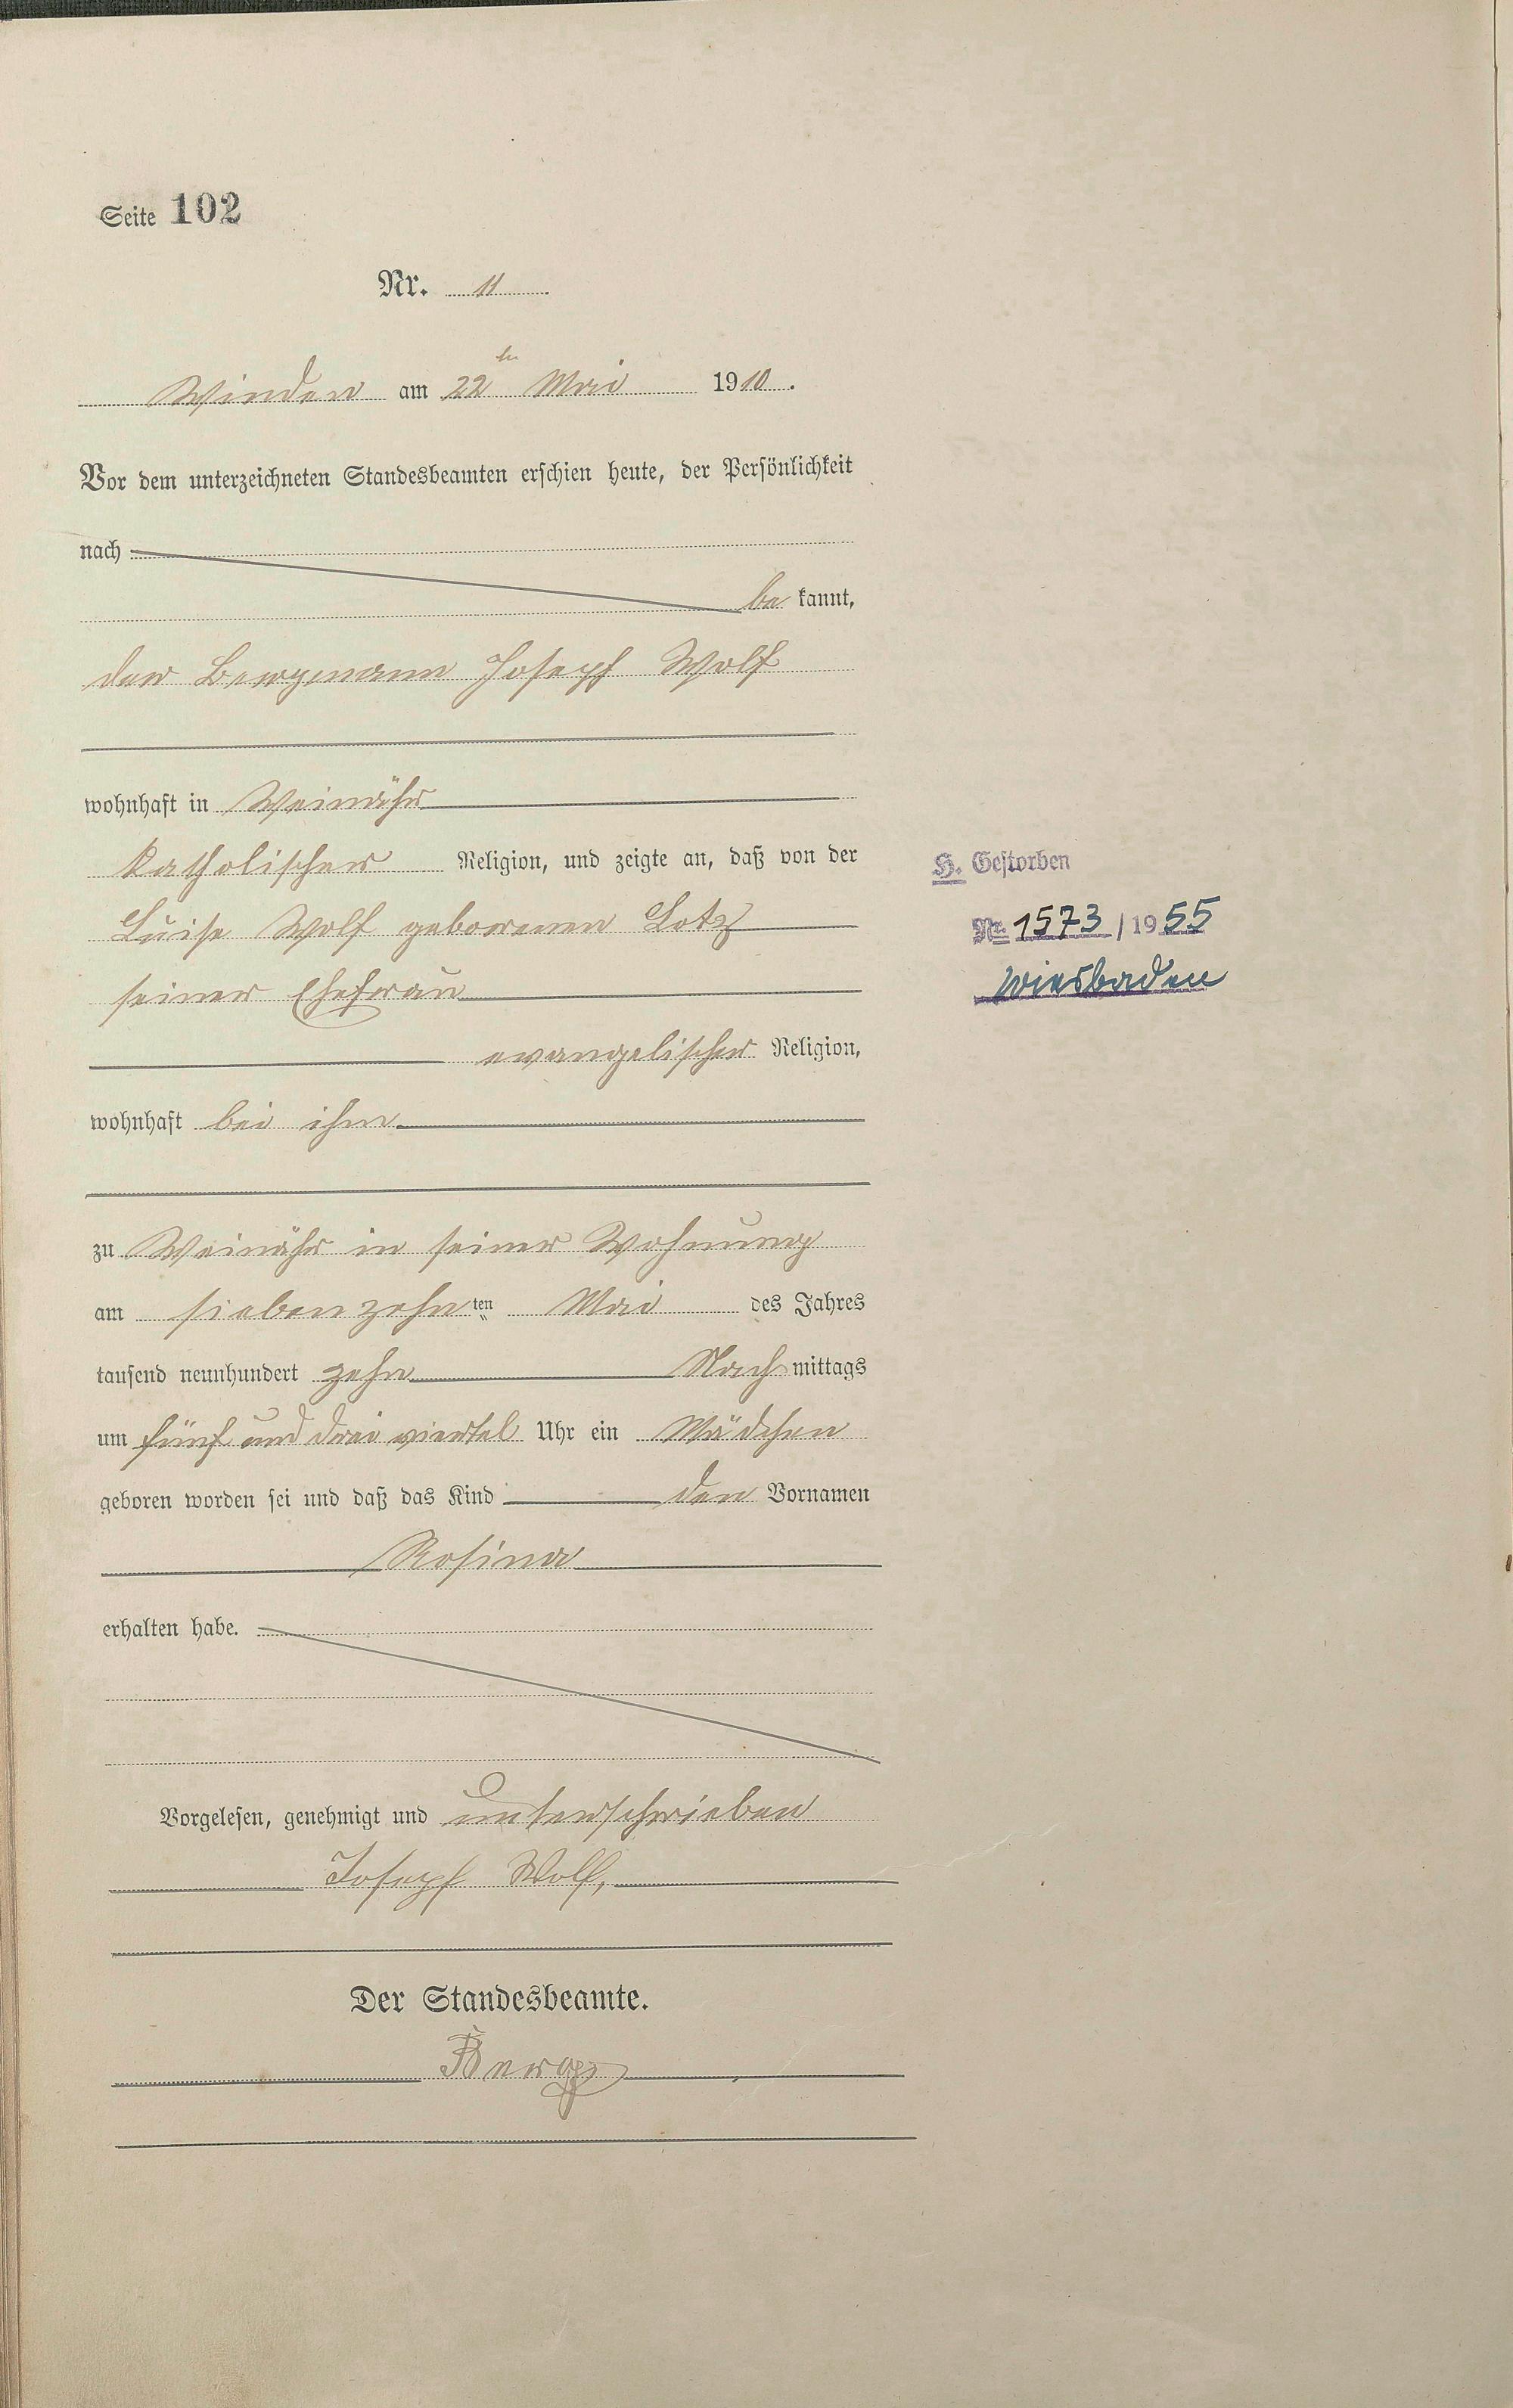 Seite 102
Nr. 11
Winden am 22ten Mai 1910.
Vor dem unterzeichneten Standesbeamten erschien heute, der Persönlichkeit
nach
be kannt,
der Bergmann Joseph Wolf
wohnhaft in Weinähr
katholischer Religion, und zeigte an, daß von der
Luise Wolf geborenen Lotz
seiner Ehefrau
evangelischer Religion,
wohnhaft bei ihm
zu Weinähr in seiner Wohnung
am siebenzehnten Mai des Jahres
tausend neunhundert zehn Nach mittags
um fünf und drei viertel Uhr ein Mädchen
geboren worden sei und daß das Kind den Vornamen
Rosina
erhalten habe.
Vorgelesen, genehmigt und unterschrieben
Joseph Wolf,
Der Standesbeamte.
Berg
H. Gestorben
Nr. 1573/1955
Wiesbaden